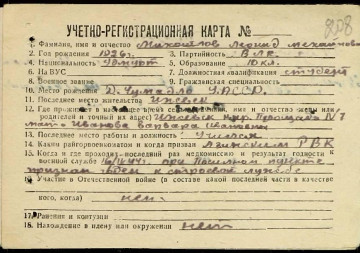 808
УЧЕТНО-РЕГИСТРАЦИОННАЯ КАРТА №
1. Фамилия, имя и отчество Михайлов Леонид
2. Год рождения 1926 г. 3. Партийность ВЛК
4. Национальность Удмурт 5. Образование 10 кл.
6. На ВУС 7. Должностная квалификация студент
8. Военное звание 9. Гражданская специальность
10. Место рождения УАССР
11. Последнее место жительства Ижевск
12. Где проживает имя и отчество жены или
родителей и точный их адрес) Ижевск
мать Иванова Варвара Ивановна
13. Последнее место работы и должность
14. Каким райгорвоенкоматом и когда призван РВК
15. Когда и где проходил последний раз медкомиссию и результат годности к
военной службе при пункте
признан годен к строевой службе
16. Участие в Отечественной войне (в составе какой последней части в качестве
кого, когда) нет
17. Ранения и контузии
18. Нахождение в плену или окружении нет